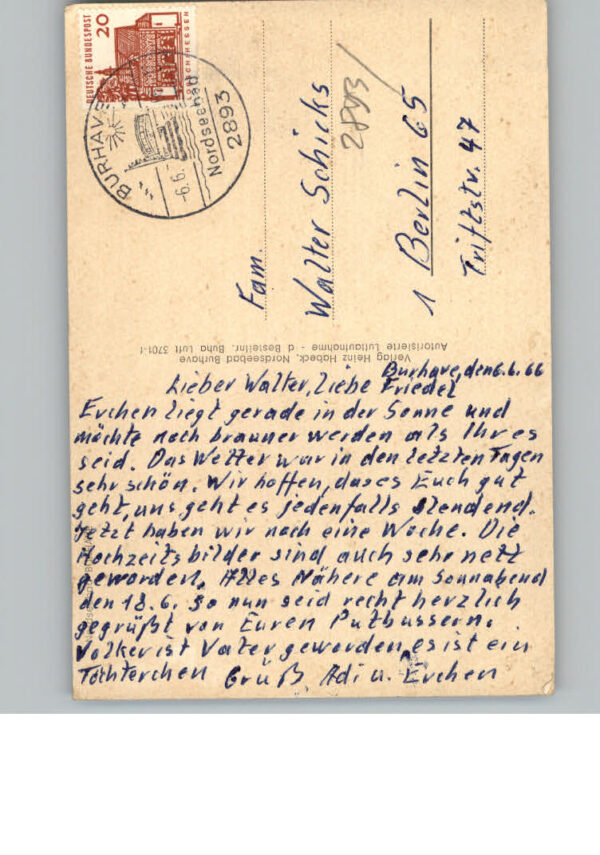 DEUTSCHE BUNDESPOST
20
LORSCH/HESSEN
BURHAVE
Nordseebad
2893
-6.6.
Fam.
Walter Schicks
2893
1 Berlin 65
Triftstr. 47
Verlag Heinz Habeck, Nordseebad Burhave
Autorisierte Luftaufnahme - d Bestellnr. Buha Luft 3701-f
Burhave, den 6.6.66
Lieber Walter, liebe Friedel
Erchen liegt gerade in der Sonne und
möchte noch brauner werden als Ihr es
seid. Das Wetter war in den letzten Tagen
sehr schön. Wir hoffen, dass es Euch gut
geht, uns geht es jedenfalls blendend.
Jetzt haben wir noch eine Woche. Die
Hochzeitsbilder sind auch sehr nett
geworden. Alles Nähere am Sonnabend
den 18.6. So nun seid recht herzlich
gegrüßt von Euren Putbussern.
Volker ist Vater geworden, es ist ein
Töchterchen Gruß Adi u. Erchen